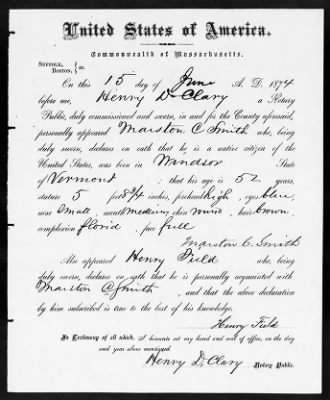 United States of America.
Commonwealth of Massachusetts.
SUFFOLK,
BOSTON, } ss.
On this 15 day of June A. D. 1874
before me, Henry D. Clary a Notary
Public, duly commissioned and sworn, in and for the County aforesaid,
personally appeared Marston C Smith who, being
duly sworn, declares on oath that he is a native citizen of the
United States, was born in Windsor State
of Vermont ; that his age is 52 years,
stature 5 feet 8 3/4 inches, forehead high, eyes blue,
nose small, mouth medium chin round, hair brown,
complexion florid, face full
Marston C. Smith
Also appeared Henry Field who, being
duly sworn, declares on oath that he is personally acquainted with
Marston C Smith , and that the above declaration
by him subscribed is true to the best of his knowledge.
Henry Field
In Testimony of all which, I hereunto set my hand and seal of office, on the day
and year above mentioned.
Henry D. Clary Notary Public.